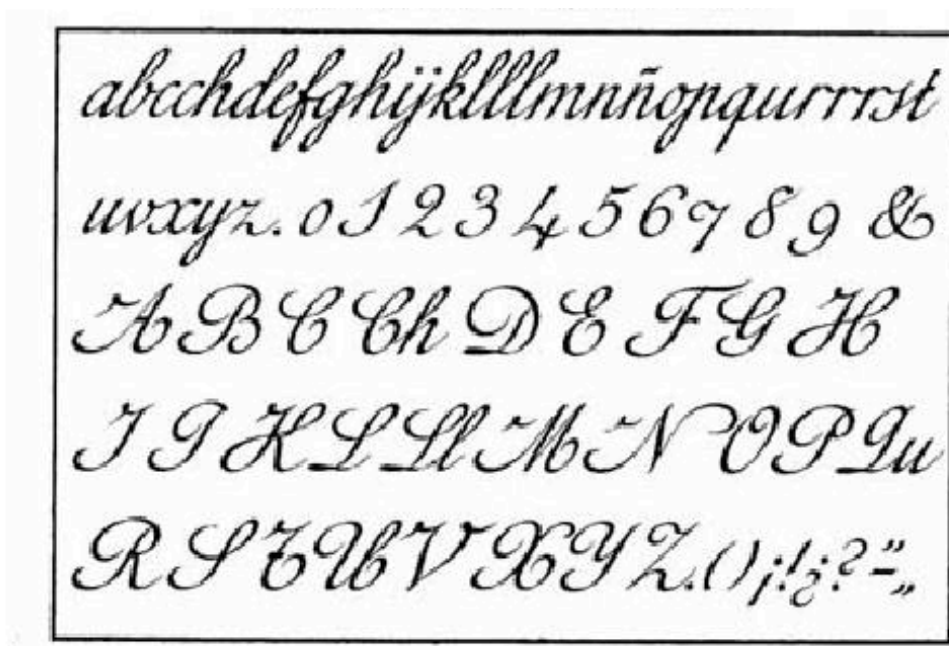 abcchdefghijklllmnñopqurrrst
uvxyz. 0 1 2 3 4 5 6 7 8 9 &
A B C Ch D E F G H
I J K L Ll M N O P Qu
R S T U V X Y Z. ( ) ¡! ¿? " - „